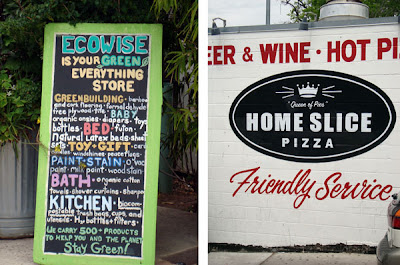 ECOWISE
IS YOUR GREEN
EVERYTHING
STORE
GREENBUILDING
and cork flooring
free plywood tile BABY
organic onesies diapers toys
bottles BED futon
Natural Latex beds
TOY + GIFT
PAINT STAIN
paint milk paint wood stain
BATH organic cotton
towels shower curtains
KITCHEN
trash bags, cups, and
utensils H2O bottles filters
WE CARRY 500+ PRODUCTS
TO HELP YOU AND THE PLANET
Stay Green!
ER & WINE · HOT PI
"Queen of Pies"
HOME SLICE
PIZZA
Friendly Service